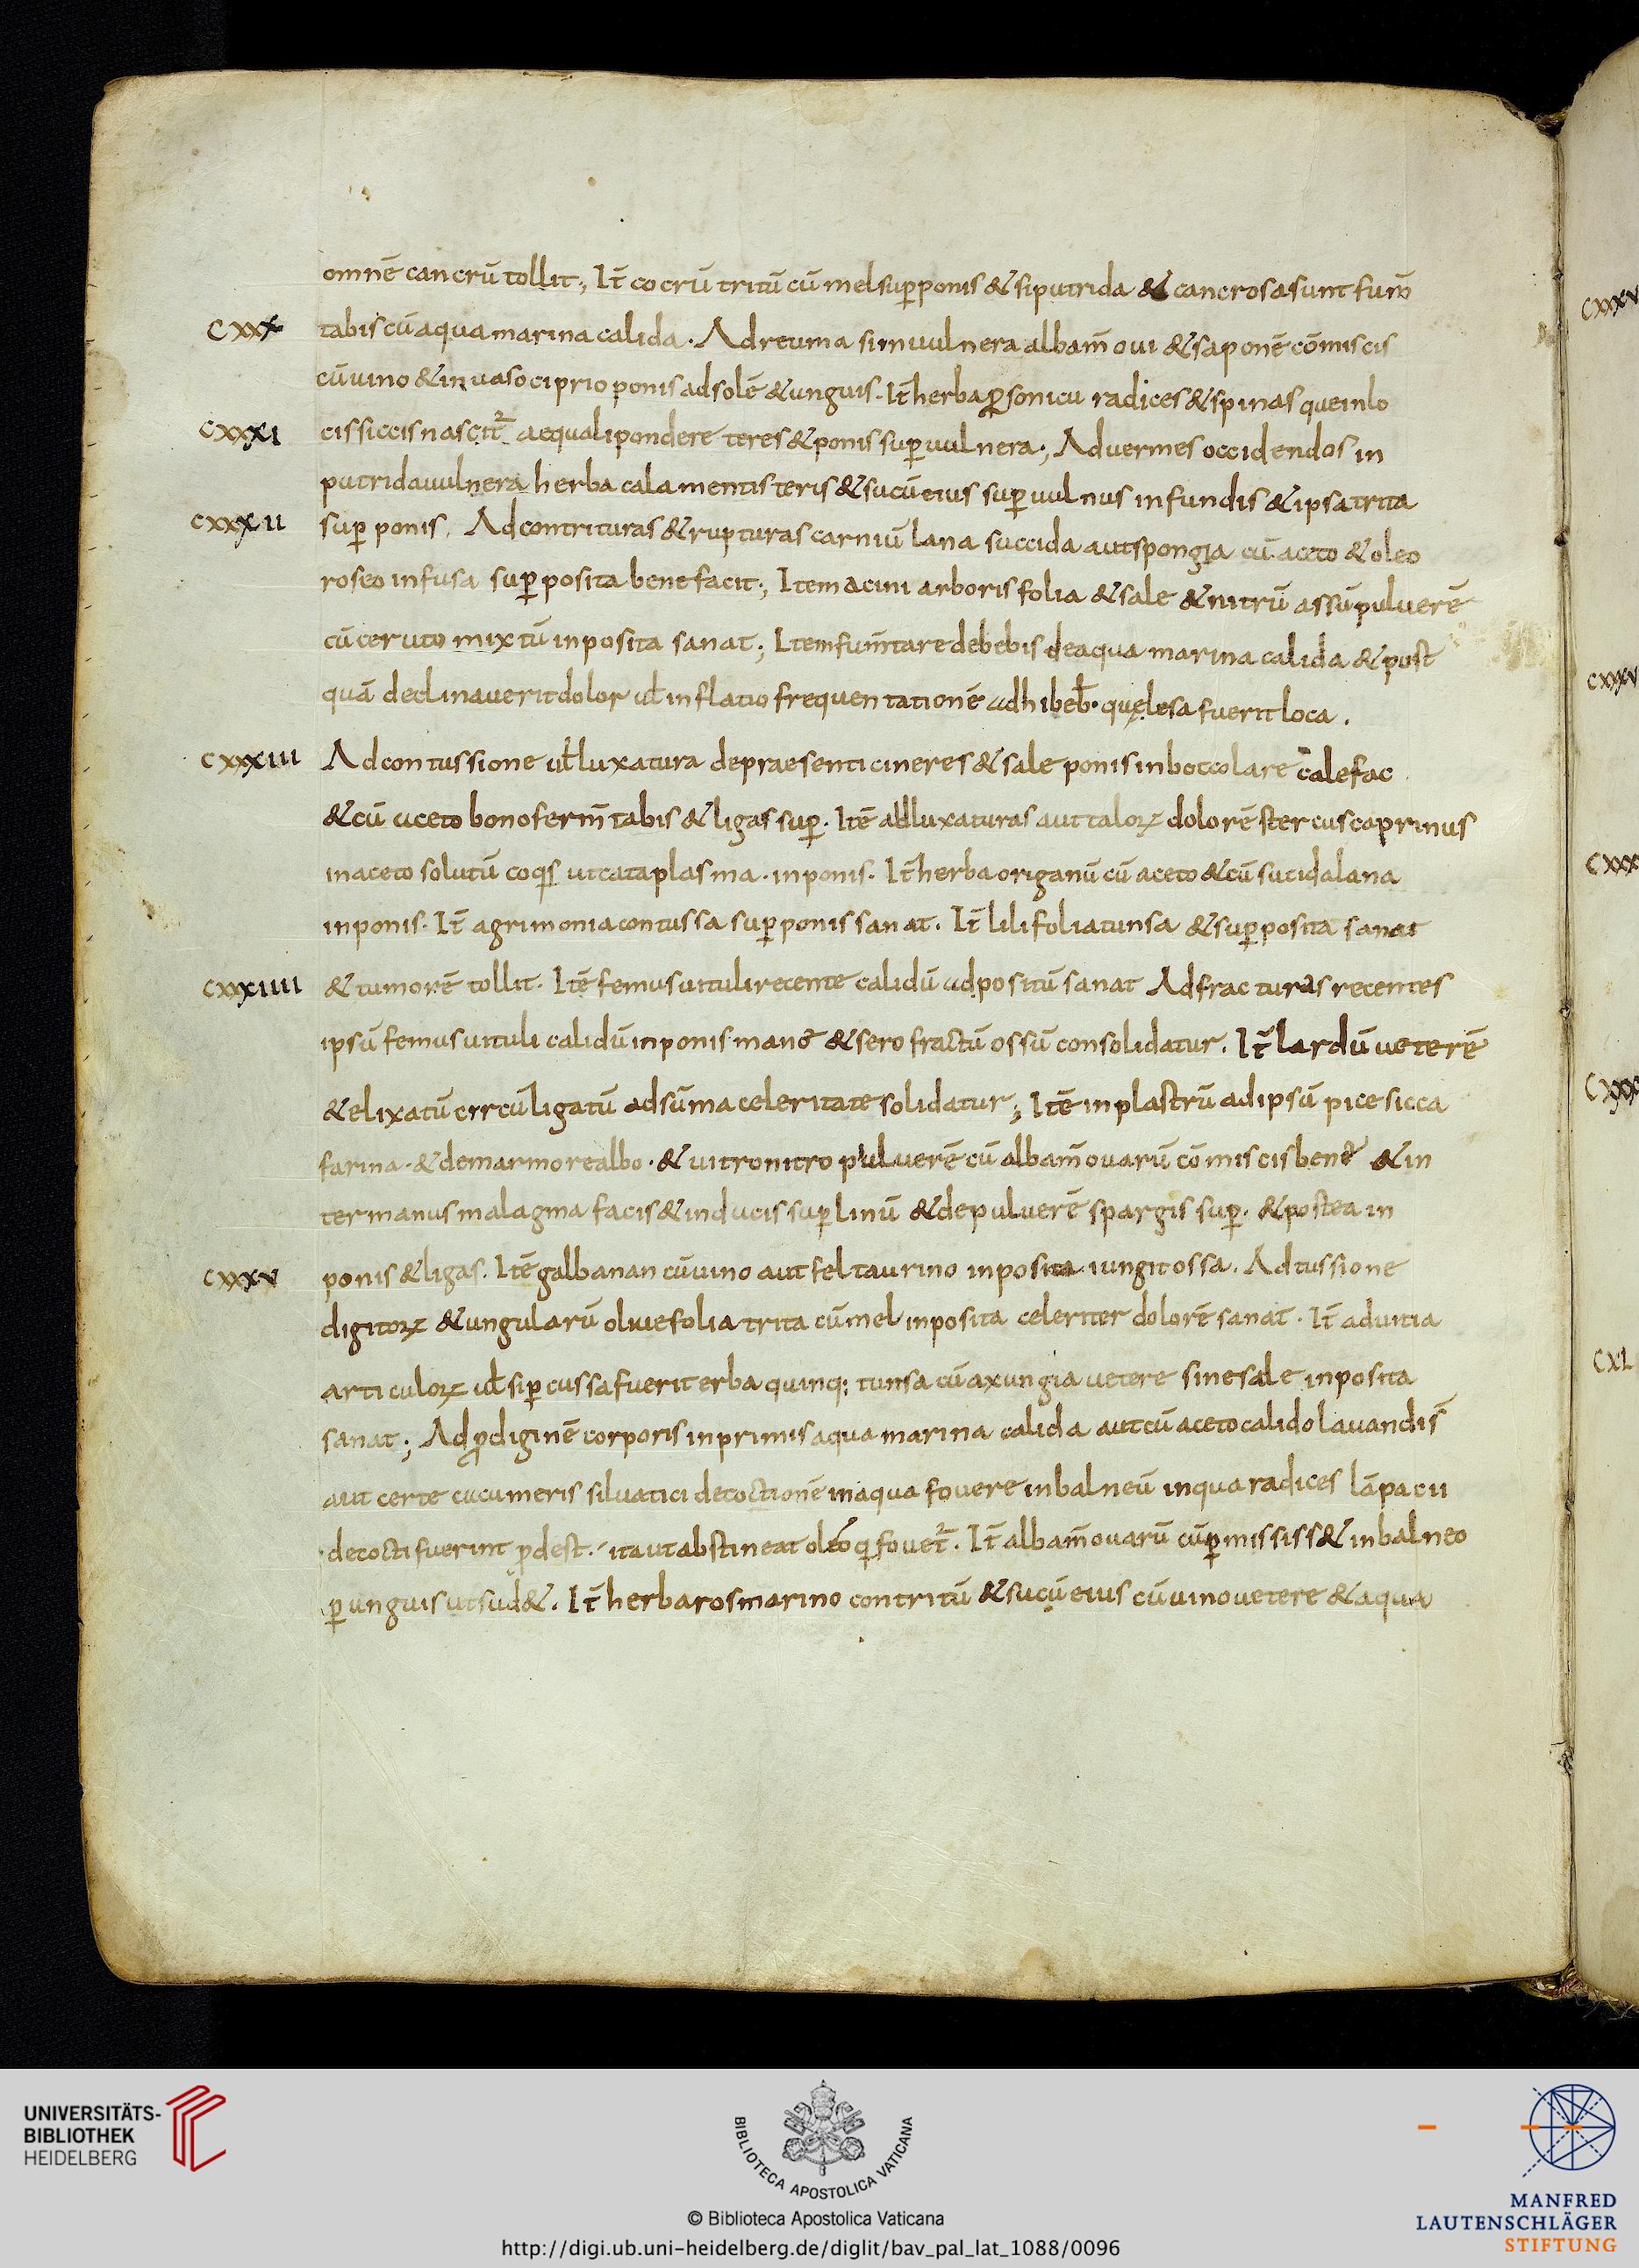 omnē cancrū tollit; It̄ cocrū tritū cū mel sup̱ponis & si putrida & cancrosa sunt fum̄
CXXX tabis cū aqua marina calida. Ad reuma sim uulnera albam̄ oui & saponē cōmiscis
cū uino & in uaso ciprio ponis ad solē & unguis. It̄ herba ꝑsonicu radices & spinas que in lo
CXXXI cis siccis nascit̄ᷣ aequali pondere teres & ponis sup̱ uulnera; Ad uermes occidendos in
putrida uulnera herba calamentis teris & sucū eius sup̱ uulnus infundis & ipsa trita
CXXXII sup̱ ponis. Ad contrituras & rupturas carniū lana succida aut spongia cū aceto & oleo
roseo infusa sup̱ posita bene facit; Item acini arboris folia & sale & nitrū assū puluerē
cū ceruto mixtū inposita sanat; Item fum̄tare debebis de aqua marina calida & post
quā declinauerit dolor ul̄ inflatio frequentationē adhibeb̄. quę lesa fuerit loca.
CXXXIII Ad contussione ul̄ luxatura de praesenti cineres & sale ponis in botcolare calefac
& cū aceto bono ferm̄tabis & ligas sup̱. Itē ad luxaturas aut taloꝝ dolorē stercus caprinus
in aceto solutū coq̱s ut cataplasma. inponis. It̄ herba origanū cū aceto & cū sucida lana
inponis. It̄ agrimonia contussa sup̱ponis sanat. It̄ lili folia tunsa & sup̱posita sanat
CXXXIIII & tumorē tollit. Itē femus uituli recente calidū adpositū sanat Ad fracturas recentes
ipsū femus uituli calidū inponis mane & sero fractū ossū consolidatur. It̄ lardū ueterē
& elixatū circū ligatū ad sūma celeritate solidatur; Itē inplastrū ad ipsū pice sicca
farina. & de marmore albo. & uitro nitro puluerē cū albam̄ ouarū cōmiscis bene & in
ter manus malagma facis & inducis sup̱ linū & de puluerē spargis sup̱. & postea in
CXXXV ponis & ligas. Itē galbanan cū uino aut fel taurino inposita iungit ossa. Ad tussione
digitoꝝ & ungularū oliue folia trita cū mel inposita celeriter dolorē sanat. It̄ ad uitia
articuloꝝ ul̄ si ꝑcussa fuerit erba quinq; tunsa cū axungia uetere sine sale inposita
sanat; Ad ꝓdiginē corporis inprimis aqua marina calida aut cū aceto calido lauandis̄
aut certe cucumeris siluatici decoctionē in aqua fouere in balneū in qua radices lāpacii
decocti fuerint ꝓdest. ita ut abstineat oleo qi fouet̄ᷣ. It̄ albam̄ ouarū cū ꝑmississ& in balneo
ꝑunguis ut sud&. It̄ herba rosmarino contritū & sucū eius cū uino uetere & aqua
CXXXV
CXXXV
CXXX
CXXX
CXL
UNIVERSITÄTS-
BIBLIOTHEK
HEIDELBERG
BIBLIOTECA APOSTOLICA VATICANA
© Biblioteca Apostolica Vaticana
http://digi.ub.uni-heidelberg.de/diglit/bav_pal_lat_1088/0096
MANFRED
LAUTENSCHLÄGER
STIFTUNG